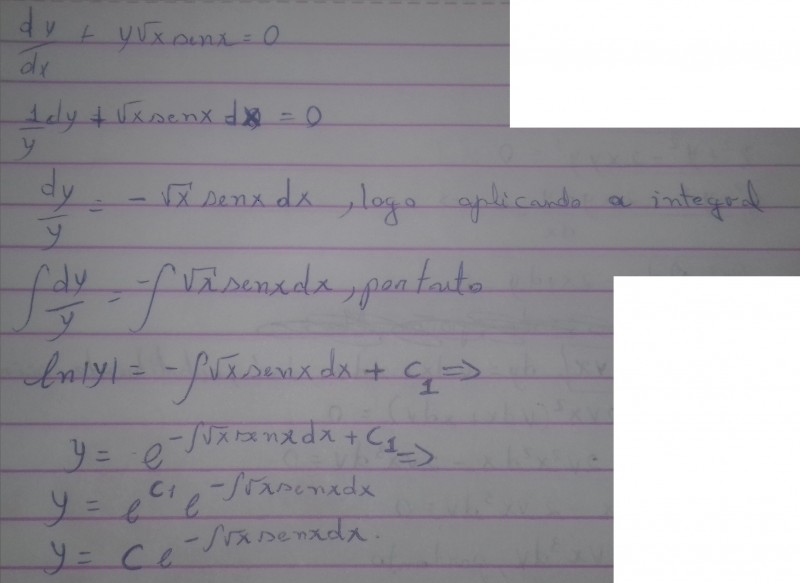 dy/dx + y√x senx = 0
1/y dy + √x senx dx = 0
dy/y = - √x senx dx , logo aplicando a integral
∫ dy/y = -∫ √x senx dx, portanto
ln|y| = -∫√x senx dx + C₁ =>
y = e^(-∫√x senx dx + C₁) =>
y = e^(C₁) e^(-∫√x senx dx)
y = C e^(-∫√x senx dx).